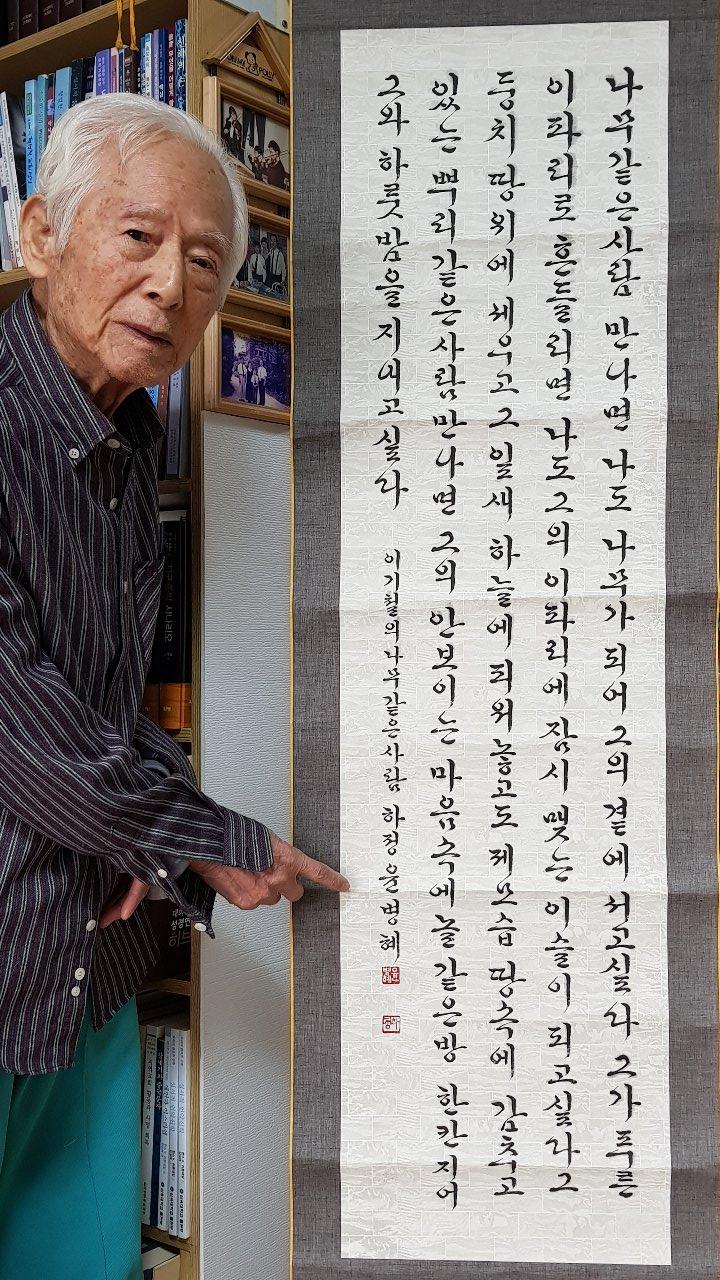 나무같은사람 만나면 나도 나무가 되어 그의 곁에 서고싶다 그가 푸른
이파리로 흔들리면 나도 그의 이파리에 잠시 맺는 이슬이 되고싶다 그
둥치 땅위에 세우고 그 잎새 하늘에 피워 놓고도 제모습 땅속에 감추고
있는 뿌리같은사람 만나면 그의 안보이는 마음속에 놀 같은 방 한칸 지어
그와 하룻밤을 지내고 싶다
이기철의 나무같은사람 하정 윤병혜